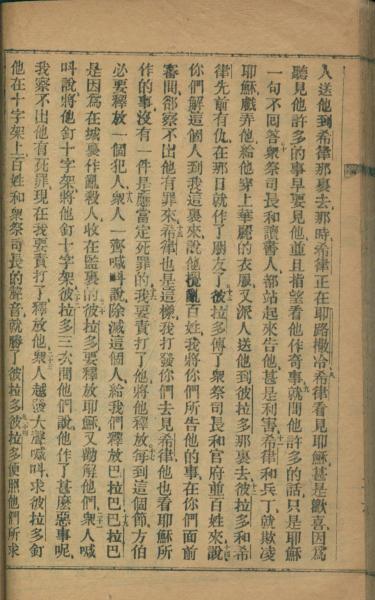 人送他到希律那裏去、那時希律正在耶路撒冷、希律看見耶穌甚是歡喜、因爲
聽見他許多的事、早要見他、並且指望看他作奇事、就問他許多的話、只是耶穌
一句不回答、衆祭司長和讀書人都站起來告他甚是利害、希律和兵丁就欺凌
耶穌戲弄他、給他穿上華麗的衣服、又派人送他到彼拉多那裏去、彼拉多和希
律先前有仇、在那日就作了朋友了、彼拉多傳了衆祭司長和官府並百姓來說、
你們解這個人到我這裏來、說他攪亂百姓、我將你們所告他的事、在你們面前
審問、卻察不出他有罪來、希律也是這樣、我打發你們去見希律、他也看耶穌所
作的事、沒有一件是應當定死罪的、我要責打了他、將他釋放、每到這個節、方伯
必要釋放一個犯人、衆人一齊喊叫說、除滅這個人、給我們釋放巴拉巴、巴拉巴
是因爲在城裏作亂殺人、收在監裏的、彼拉多要釋放耶穌、又勸解他們、衆人喊
叫說、將他釘十字架、將他釘十字架、彼拉多三次問他們說、他作了甚麼惡事呢、
我察不出他有死罪、現在我要責打了釋放他、衆人越發大聲喊叫、求彼拉多釘
他在十字架上、百姓和衆祭司長的聲音就勝了彼拉多、彼拉多便照他們所求